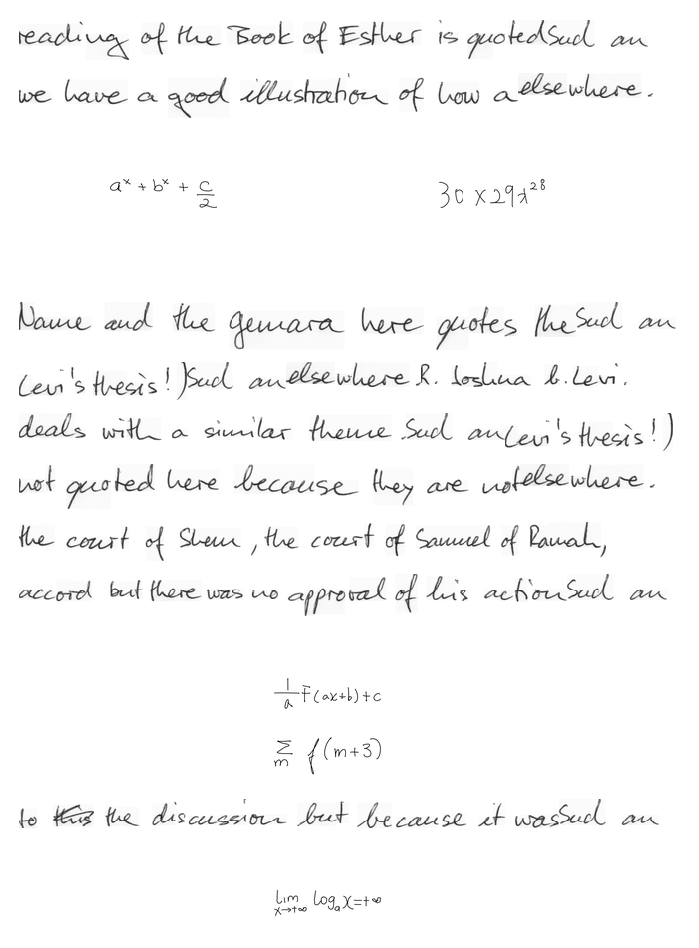 reading of the Book of Esther is quotedSud an
we have a good illustration of how a elsewhere.
a^x + b^x + \frac{c}{2}
30 × 29x^{28}
Name and the gemara here quotes the Sud an
Levi's thesis!) Sud an elsewhere R. Joshua b. Levi.
deals with a similar theme Sud an Levi's thesis!)
not quoted here because they are not elsewhere.
the court of Shem, the court of Samuel of Ramah,
accord but there was no approval of his action Sud an
\frac{1}{a} F(ax+b)+c
\sum_{m} f(m+3)
to the discussion but because it was Sud an
\lim_{x→+∞} log_a x=+∞